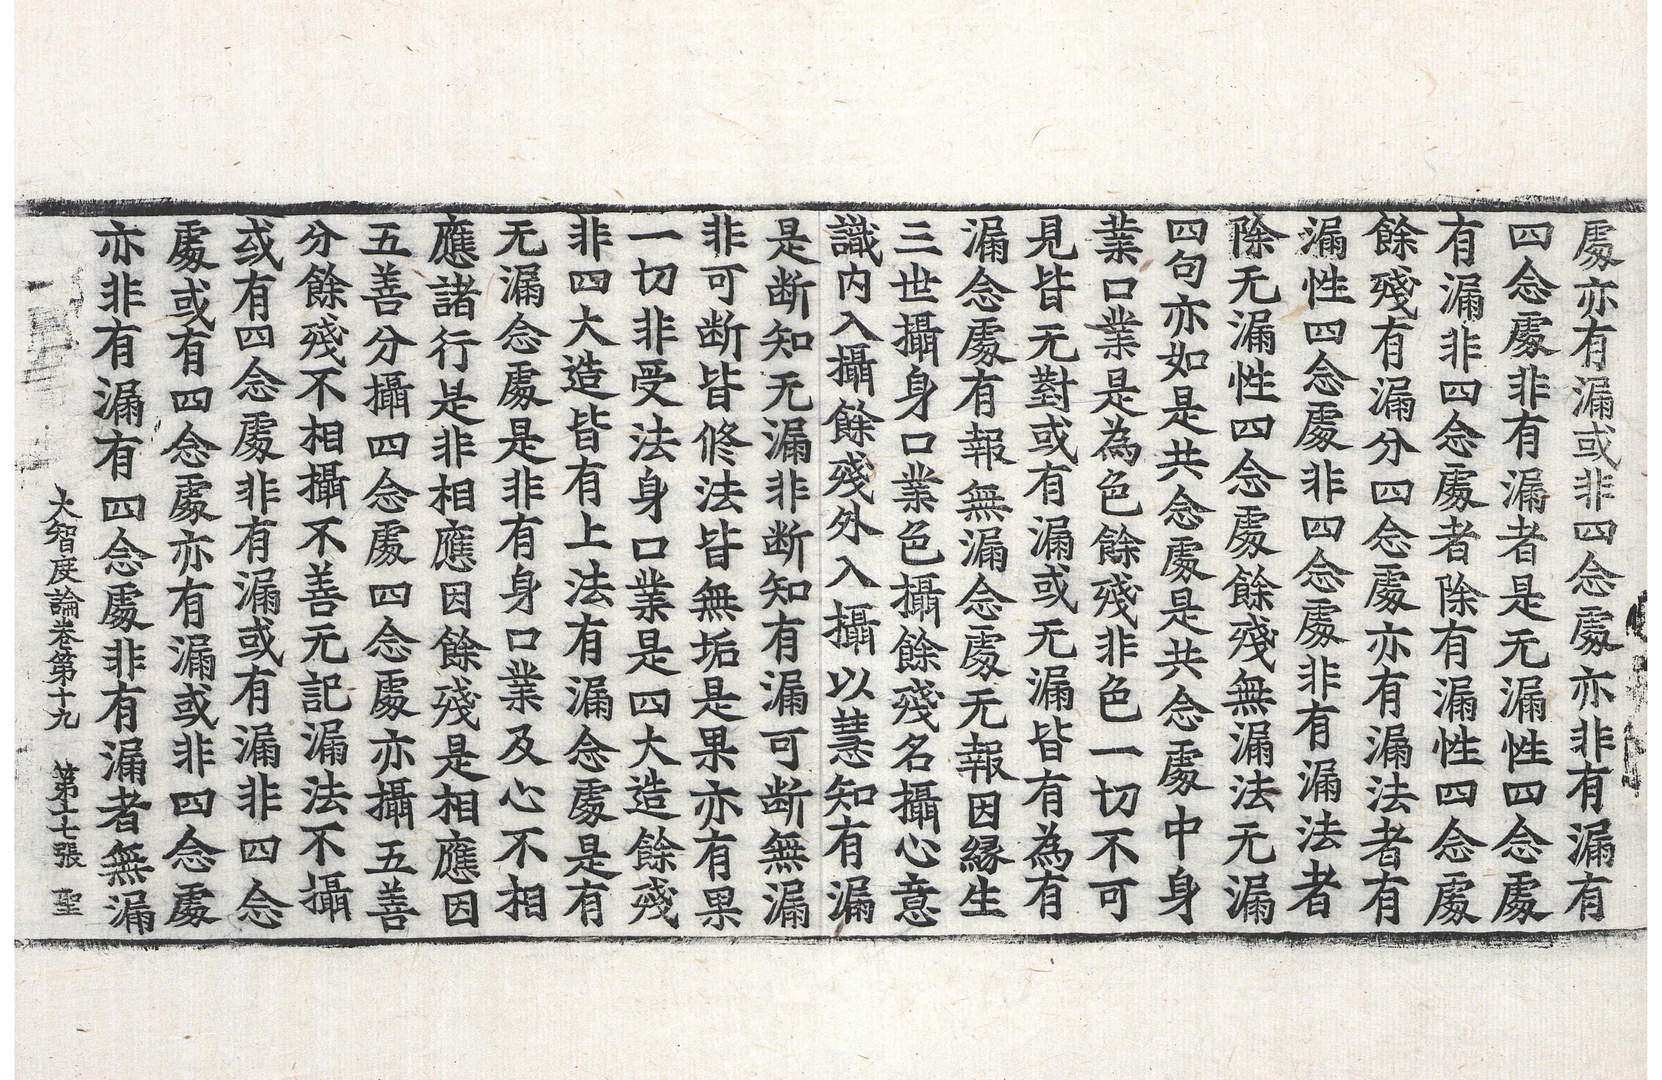 處亦有漏或非四念處亦非有漏有
四念處非有漏者是无漏性四念處
有漏非四念處者除有漏性四念處
餘殘有漏分四念處亦有漏法者有
漏性四念處非四念處非有漏法者
除无漏性四念處餘殘無漏法无漏
四句亦如是共念處是共念處中身
業口業是為色餘殘非色一切不可
見皆无對或有漏或无漏皆有為有
漏念處有報無漏念處无報因緣生
三世攝身口業色攝餘殘名攝心意
識內入攝餘殘外入攝以慧知有漏
是断知无漏非断知有漏可断無漏
非可断皆修法皆無垢是果亦有果
一切非受法身口業是四大造餘殘
非四大造皆有上法有漏念處是有
无漏念處是非有身口業及心不相
應諸行是非相應因餘殘是相應因
五善分攝四念處四念處亦攝五善
分餘殘不相攝不善无記漏法不攝
或有四念處非有漏或有漏非四念
處或有四念處亦有漏或非四念處
亦非有漏有四念處非有漏者無漏
大智度論卷第十九 第十七張 聖